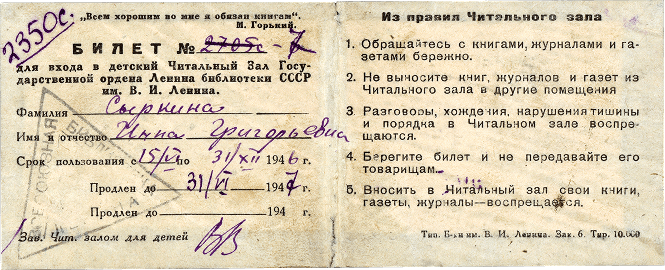 2350с.
„Всем хорошим во мне я обязан книгам“.
М. Горький.
БИЛЕТ № 2705с
для входа в детский Читальный Зал Госу-
дарственной ордена Ленина библиотеки СССР
им. В. И. Ленина.
Фамилия Сыркина
Имя и отчество Инна Григорьевна
Срок пользования с 15/VI по 31/XII 1946 г.
Продлен до 31/VI 1947 г.
Продлен до 194 г.
Зав. Чит. залом для детей
Из правил Читального зала
1. Обращайтесь с книгами, журналами и га-
зетами бережно.
2. Не выносите книг, журналов и газет из
Читального зала в другие помещения
3 Разговоры, хождения, нарушения тишины
и порядка в Читальном зале воспре-
щаются.
4. Берегите билет и не передавайте его
товарищам.
5. Вносить в Читальный зал свои книги,
газеты, журналы—воспрещается.
Тип. Б-ки им. В. И. Ленина. Зак. 6. Тир. 10.000